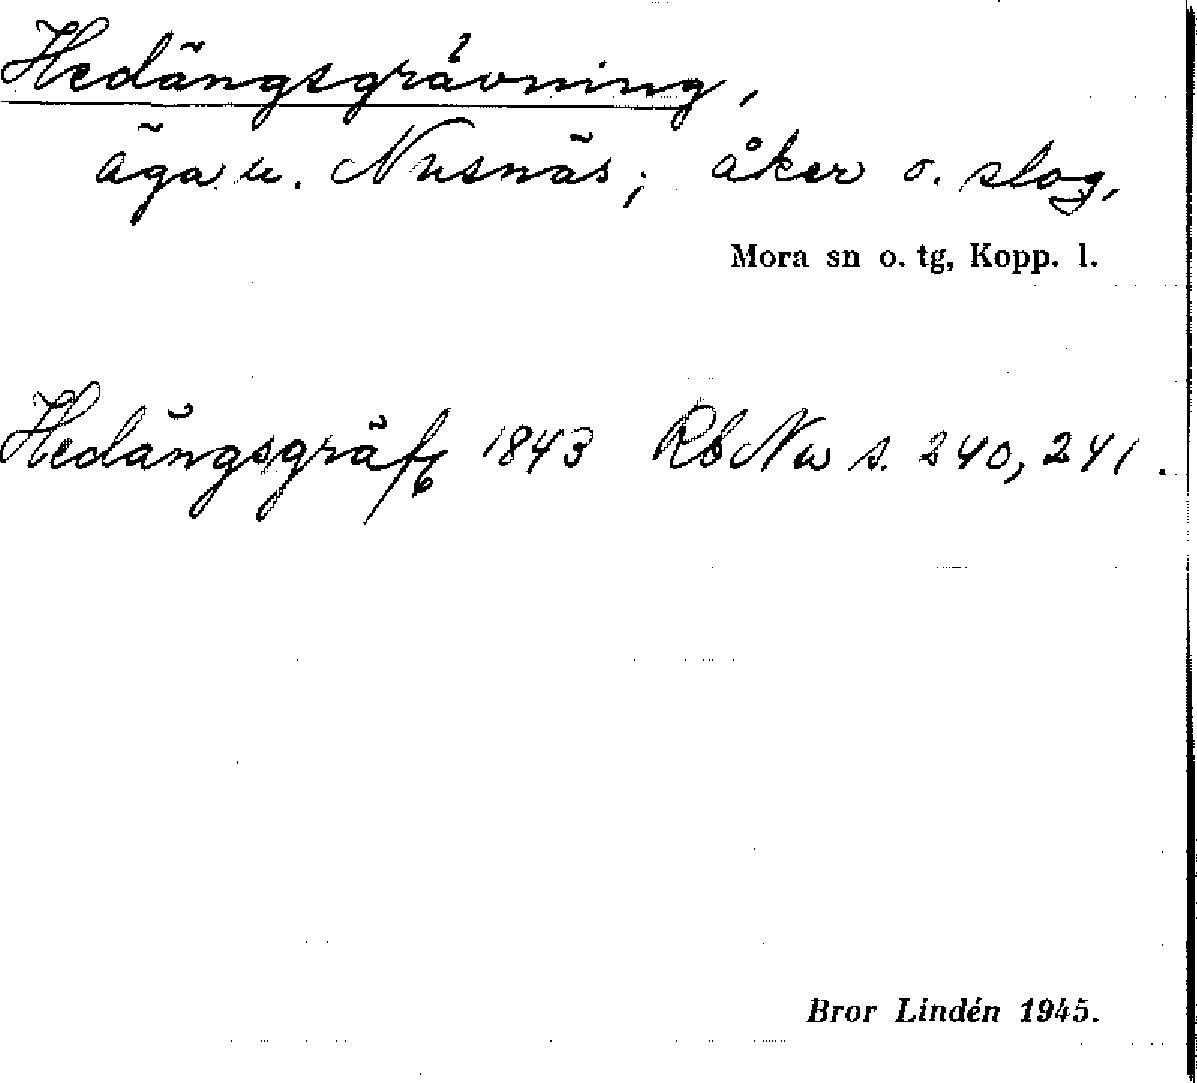 Hedängsgrävning,
äga u. Nusnäs; åker o. slog,
Mora sn o. tg, Kopp. l.
Hedängsgräfg 1843 Rb Nu s. 240, 241.
Bror Lindén 1945.